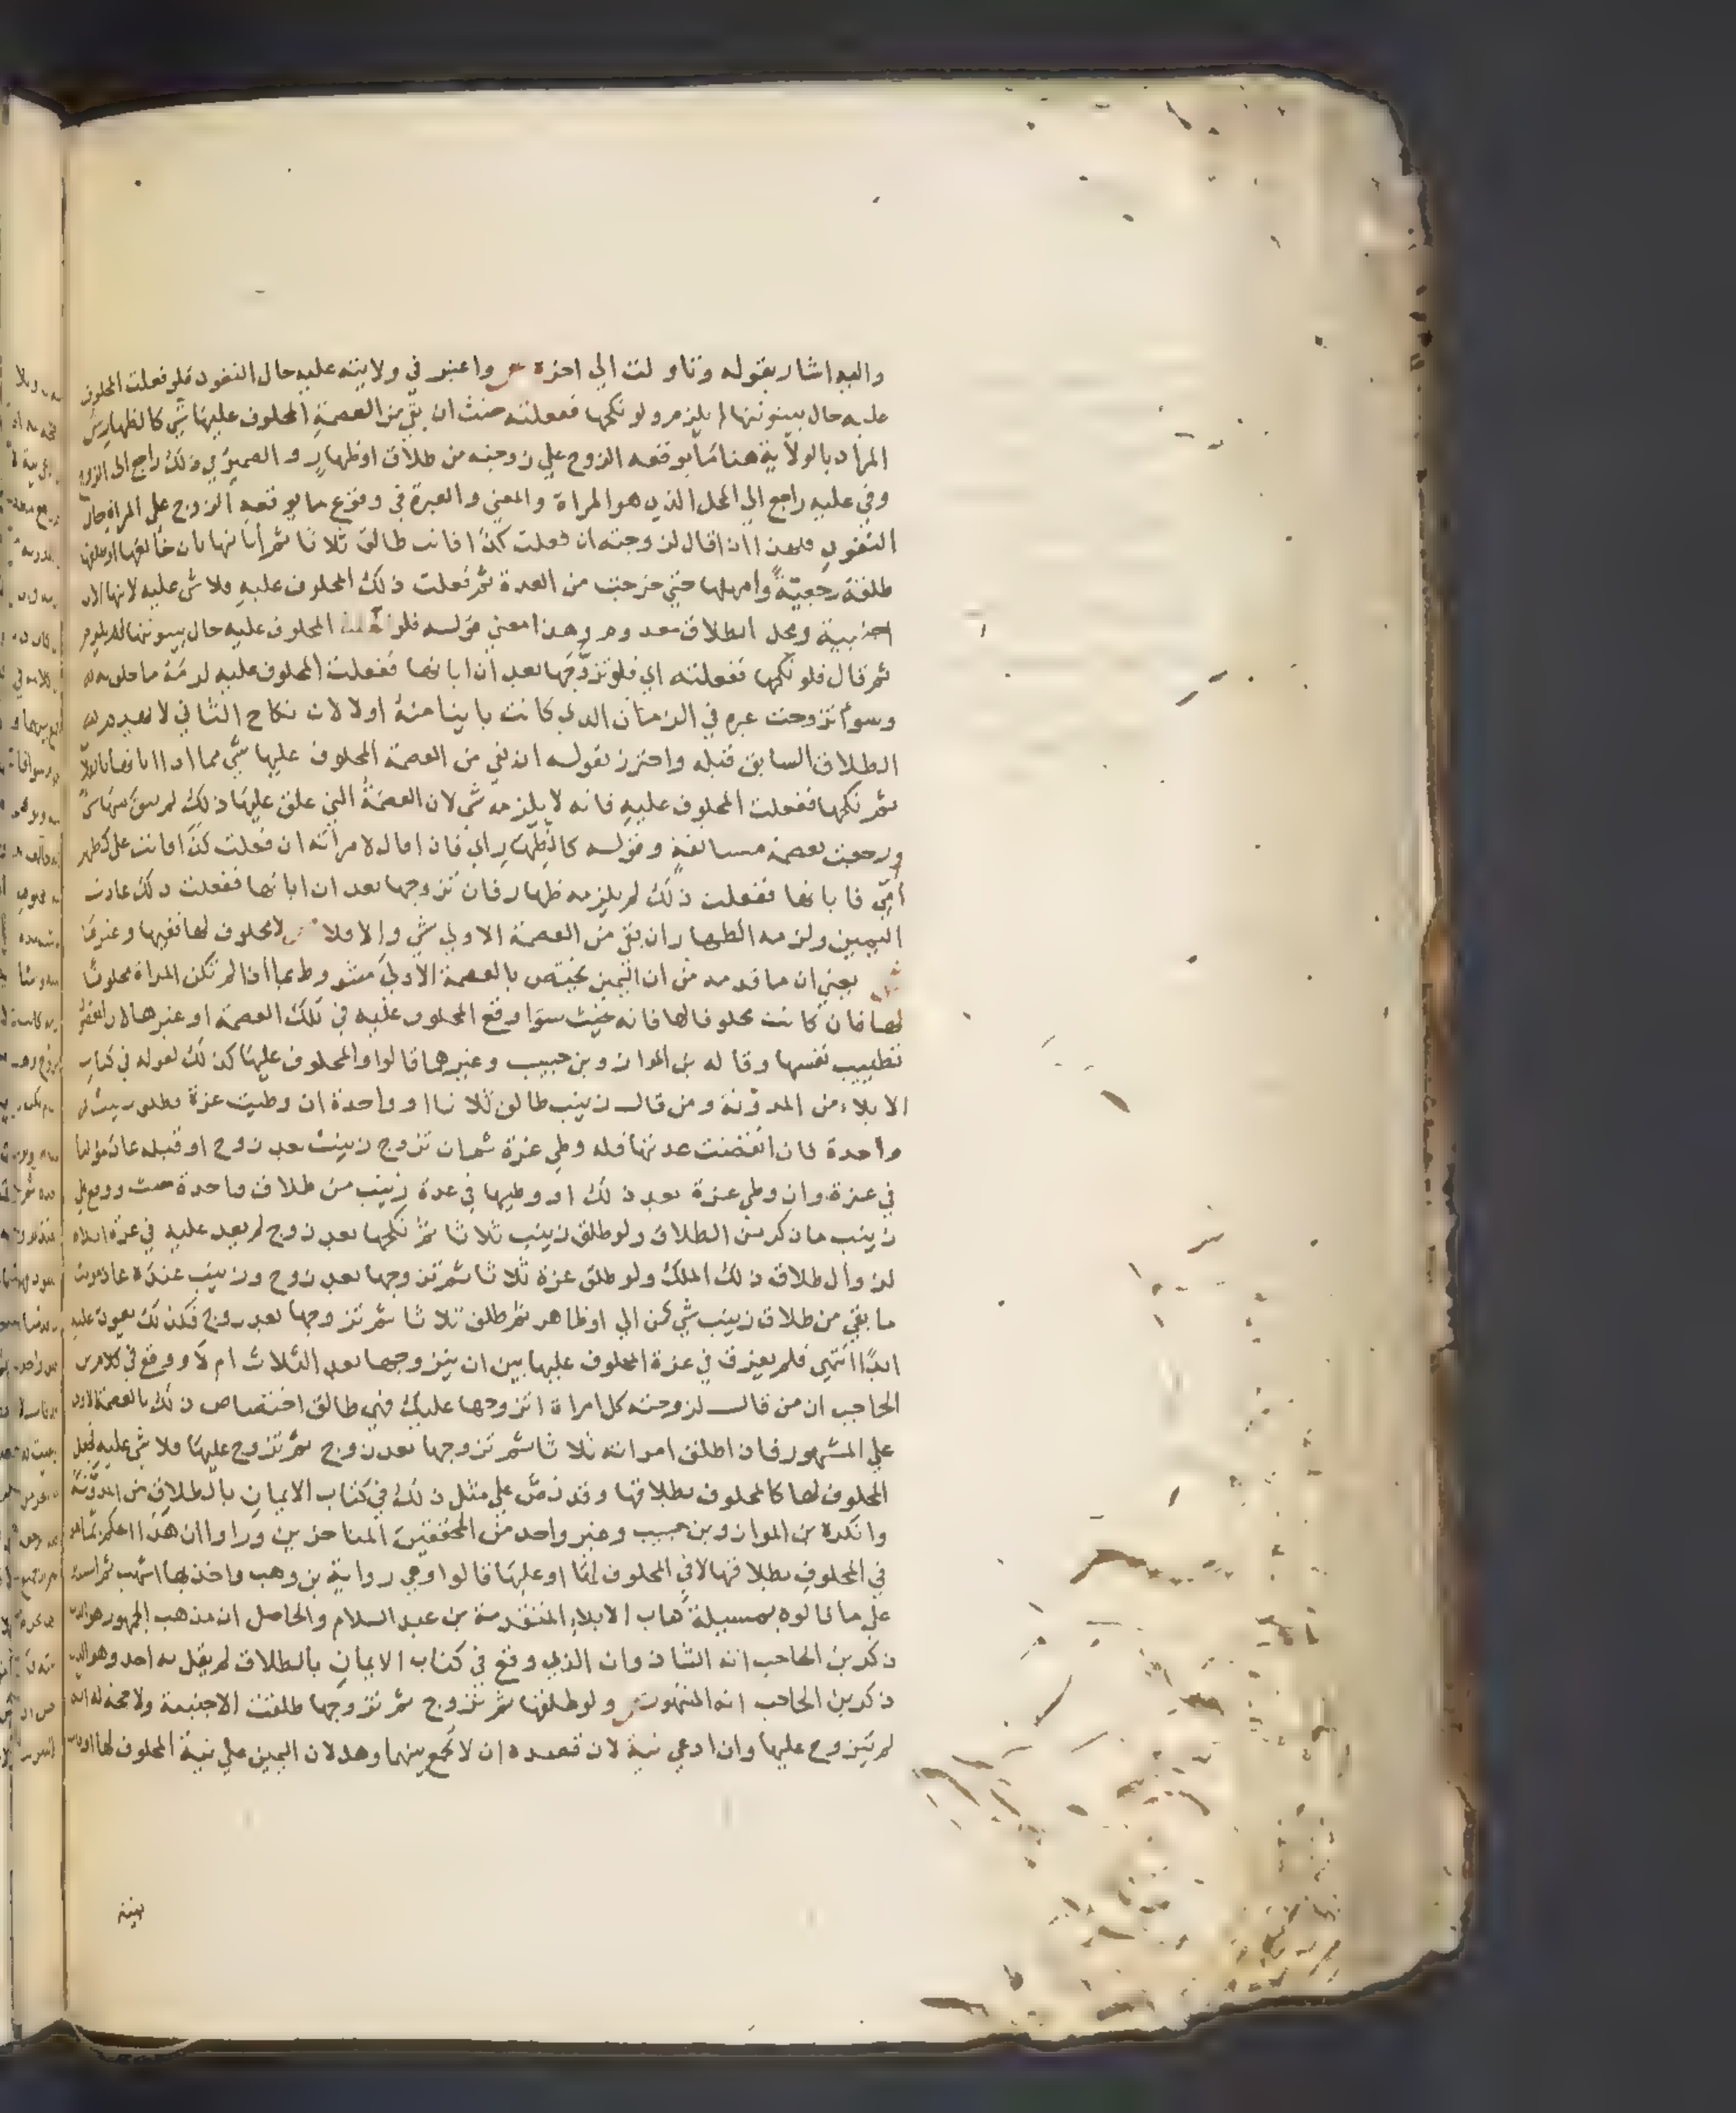 واليه اشار بقوله وتاولت الي اخره ص واعتبر في ولايته عليه حال النفوذ فلو فعلت المحلوف
عليه حال بينونتها لم يلزم ولو نكحها ففعلته حنث ان بقي من العصمة المحلوف عليها شي كالظهار ش
المراد بالولاية هنا ما يوقعه الزوج علي زوجته من طلاق او ظهار والضمير في ذلك راجع الى الزوج
وفي عليه راجع الي المحل الذي هو المراة والمعني والعبرة في وقوع ما يوقعه الزوج علي المراة حال
النفوذ فلهذا اذا قال لزوجته ان فعلت كذا فانت طالق ثلاثا ثم أبانها بان خالعها او طلقها
طلقة رجعيّةً وامهلها حتي خرجت من العدة ثم فعلت ذلك المحلوف عليه فلا شي عليه لانها الان
اجنبية ومحل الطلاق معدوم وهذا معني قوله فلو فعلت المحلوف عليه حال بينونتها لم يلزم
ثم قال فلو نكحها ففعلته اي فلو تزوّجها بعد ان ابانها ففعلت المحلوف عليه لزمه ما حلف به
وسوأ تزوجت غيره في الزمان الذي كانت باينا منه اولا لان نكاح الثاني لا يهدم
الطلاق السابق قبله واحترز بقوله ان بقي من العصمة المحلوف عليها شي مما اذا ابانها بالثلاث
ثم نكحها ففعلت المحلوف عليه فانه لا يلزمه شي لان العصمة التي علق عليها ذلك لم يبق منها شي
ورجعت بعصمة مستانفةٍ وقوله كالظهار اي فان قال لامرأته ان فعلت كذا فانت علي كظهر
أمّي فابانها ففعلت ذلك لم يلزمه ظهار فان تزوجها بعد ان ابانها ففعلت ذلك عادت
اليمين ولزمه الظهار ان بقي من العصمة الاولي شي والا فلا ص لا محلوف لها ففيها وغيرها
ش يعني ان ما قدمه من ان اليمين يختص بالعصمة الأولي مشروط بما اذا لم تكن المراة محلوفا
لها فان كانت محلوفا لها فانه يحنث سوا وقع المحلوف عليه في تلك العصمة او غيرها
تطييب نفسها وقاله بن المواز وبن حبيب وغيرهما قالوا والمحلوف عليها كذلك لقوله في كتاب
الايلاء من المدونة ومن قال زينب طالق ثلاثا او واحدة ان وطيت عزة
واحدة فان انقضت عدتها فله وطي عزة ثم ان تزوج زينب بعد زوج او قبله عاد موليا
في عزة وان وطي عزة بعد ذلك او وطيها في عدة زينب من طلاق واحدة حنث ووقع علي
زينب ما ذكر من الطلاق ولو طلق زينب ثلاثا ثم نكحها بعد زوج لم يعد عليه في عزة ايلاء
لزوال طلاق ذلك الملك ولو طلق عزة ثلاثا ثم تزوجها بعد زوج وزينب عنده عاد موليا
ما بقي من طلاق زينب شي كمن الي او ظاهر ثم طلق ثلاثا ثم تزوجها بعد زوج فكذلك يعود عليه
ابدًا انتهي فلم يفرق في عزة المحلوف عليها بين ان يتزوجها بعد الثلاث ام لا ووقع في كلام بن
الحاجب ان من قال لزوجته كل امراة اتزوجها عليك فهي طالق اختصاص ذلك بالعصمة الاولي
علي المشهور فان اطلق امراته ثلاثا ثم تزوجها بعد زوج ثم تزوج عليها فلا شي عليه فجعل
المحلوف لها كالمحلوف بطلاقها وقد نصّ علي مثل ذلك في كتاب الايمان بالطلاق من المدوّنة
وانكره بن المواز وبن حبيب وغير واحد من المحققين المتاخرين وراوا ان هذا الحكم
في المحلوف بطلاقها لا في المحلوف لها او عليها قالوا وهي رواية بن وهب واخذ بها اشهب
علي ما قالوه بمسيلة كتاب الايلاء المتقدمة بن عبد السلام والحاصل ان مذهب الجمهور هو الذي
ذكر بن الحاجب انه الشاذ وان الذي وقع في كتاب الايمان بالطلاق لم يقل به احد وهو الذي
ذكر بن الحاجب انه المشهور ص ولو طلقها ثم تزوج ثم تزوجها طلقت الاجنبية ولا حجة له انه
لم يتزوج عليها وان ادعي نية لان قصده ان لا يجمع بينهما وهل لان اليمين علي نية المحلوف لها او
بينة